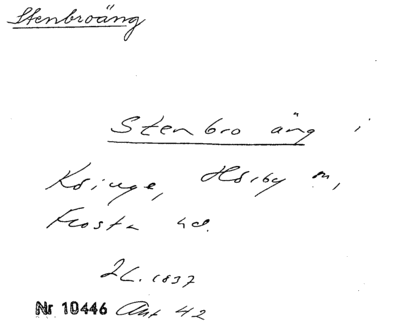 Stenbroäng
Stenbro äng i
Ksinge, Hörby sn,
Frosta hd.
JL. 1897
Nr 10446 Ant 42